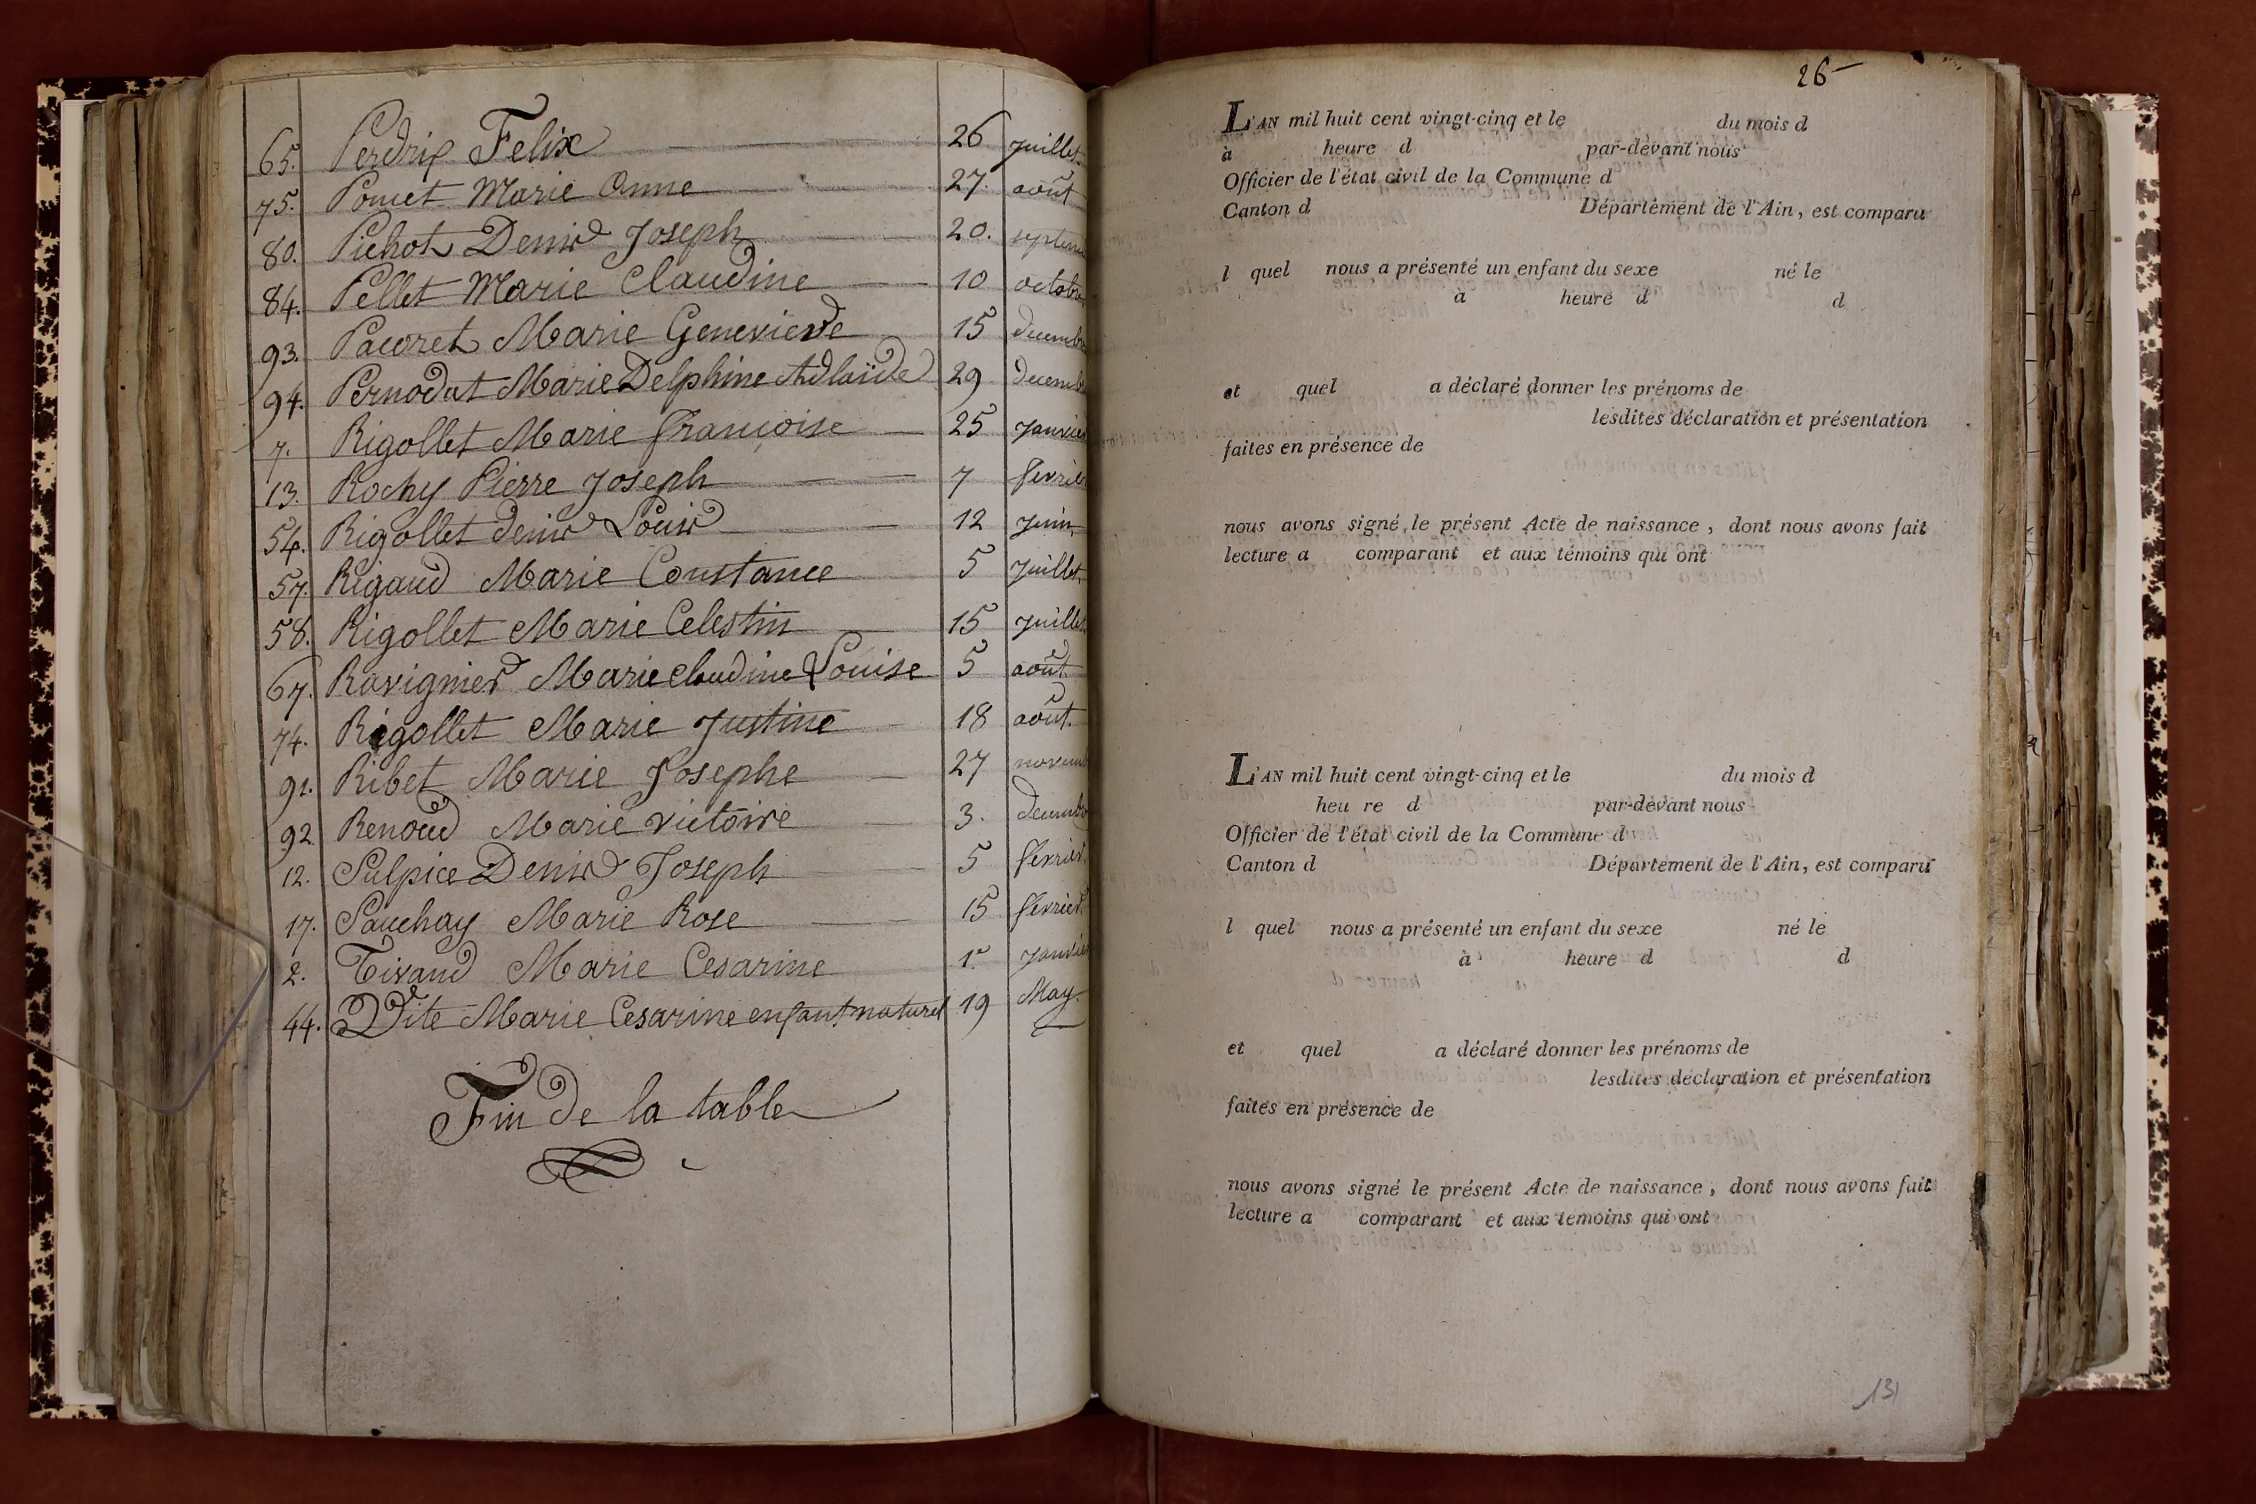 65. Perdrix Felix 26 juillet
75. Poncet Marie Anne 27. août
80. Pichot Denis Joseph 20. septem
84. Pellet Marie Claudine 10 octobre
93. Pacoret Marie Genevieve 15 decemb
94. Pernodat Marie Delphine Adlaïde 29 decemb
7. Rigollet Marie françoise 25 janvier
13. Rochy Pierre Joseph 7 fevrier
54. Rigollet denis Louis 12 juin
57. Rigaud Marie Constance 5 juillet
58. Rigollet Marie Celestin 15 juillet
67. Ravignier Marie claudine Louise 5 août
74. Rigollet Marie Justine 18 août.
91. Ribet Marie Josephe 27 novemb
92 Renoud Marie victoire 3. decemb
12. Sulpice Denis Joseph 5 fevrier
17. Sauchay Marie Rose 15 fevrier
2. Tivand Marie Cesarine 1er janvier
44. Dite Marie Cesarine enfant naturel 19 May.
Fin de la table
26
L'AN mil huit cent vingt-cinq et le du mois d
à heure d par-devant nous
Officier de l'état civil de la Commune d
Canton d Département de l'Ain, est comparu
l quel nous a présenté un enfant du sexe né le
à heure d d
et quel a déclaré donner les prénoms de
lesdites déclaration et présentation
faites en présence de
nous avons signé le présent Acte de naissance, dont nous avons fait
lecture a comparant et aux témoins qui ont
L'AN mil huit cent vingt-cinq et le du mois d
heu re d par-devant nous
Officier de l'état civil de la Commune d
Canton d Département de l'Ain, est comparu
l quel nous a présenté un enfant du sexe né le
à heure d d
et quel a déclaré donner les prénoms de
lesdites déclaration et présentation
faites en présence de
nous avons signé le présent Acte de naissance, dont nous avons fait
lecture a comparant et aux temoins qui ont
131